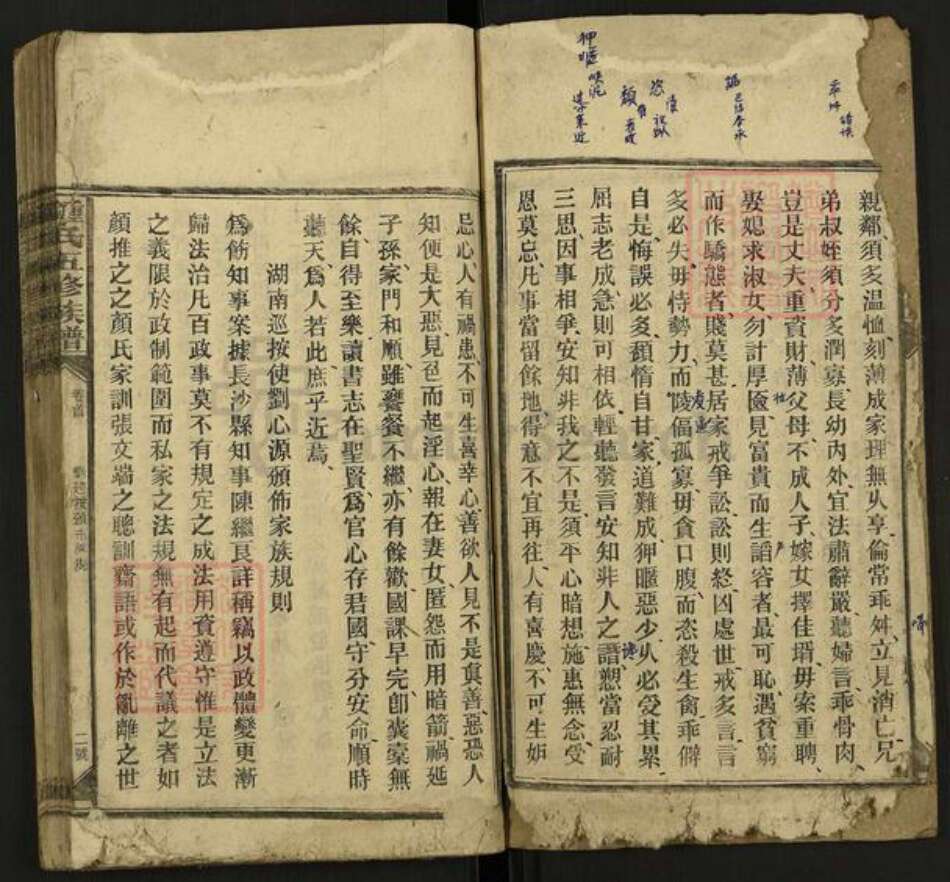 親鄰須多温恤刻薄成家理無乆享倫常乖舛立見消亡兄
弟叔姪須分多潤寡長幼內外宜法肅辭嚴聽婦言乖骨肉
豈是丈夫重資財薄父母不成人子嫁女擇佳壻毋索重聘
娶媳求淑女勿計厚奩見富貴而生謟容者最可恥遇貧窮
而作驕態者賤莫甚居家戒爭訟訟則終凶處世戒多言言
多必失毋恃勢力而陵偪孤寡毋貪口腹而恣殺生禽乖僻
自是悔誤必多頹惰自甘家道難成狎暱惡少乆必受其累
屈志老成急則可相依輕聽發言安知非人之譖愬當忍耐
三思因事相爭安知非我之不是須平心暗想施惠無念受
恩莫忘凡事當留餘地得意不宜再往人有喜慶不可生妬
忌心人有禍患不可生喜幸心善欲人見不是眞善惡恐人
知便是大惡見色而起淫心報在妻女匿怨而用暗箭禍延
子孫家門和順雖饔飧不繼亦有餘歡國課早完卽囊橐無
餘自得至樂讀書志在聖賢爲官心存君國守分安命順時
聽天爲人若此庶乎近焉
湖南巡按使劉心源頒佈家族規則
爲飭知事案據長沙縣知事陳繼良詳稱竊以政體變更漸
歸法治凡百政事莫不有規定之成法用資遵守惟是立法
之義限於政制範圍而私家之法規無有起而代議之者如
顔推之之顔氏家訓張文端之聰訓齋語或作於亂離之世
鍾氏五修族譜
卷首
二號